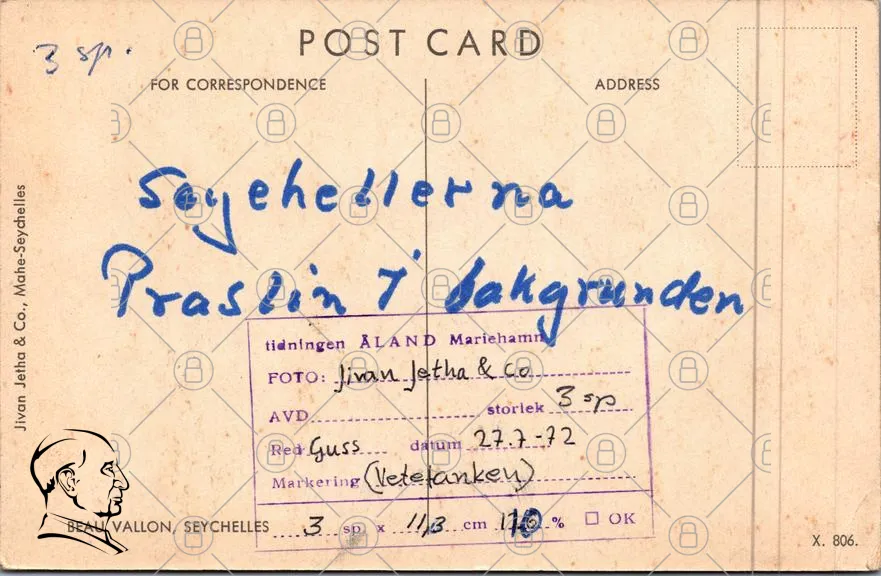 POST CARD
3 sp.
FOR CORRESPONDENCE
ADDRESS
Seychellerna
Praslin i bakgrunden
Jivan Jetha & Co., Mahe-Seychelles
tidningen ÅLAND Mariehamn
FOTO: Jivan Jetha & Co
AVD storlek 3 sp
Red Guss datum 27.7-72
Markering
3 sp x 11,3 cm % OK
BEAU VALLON, SEYCHELLES
X. 806.